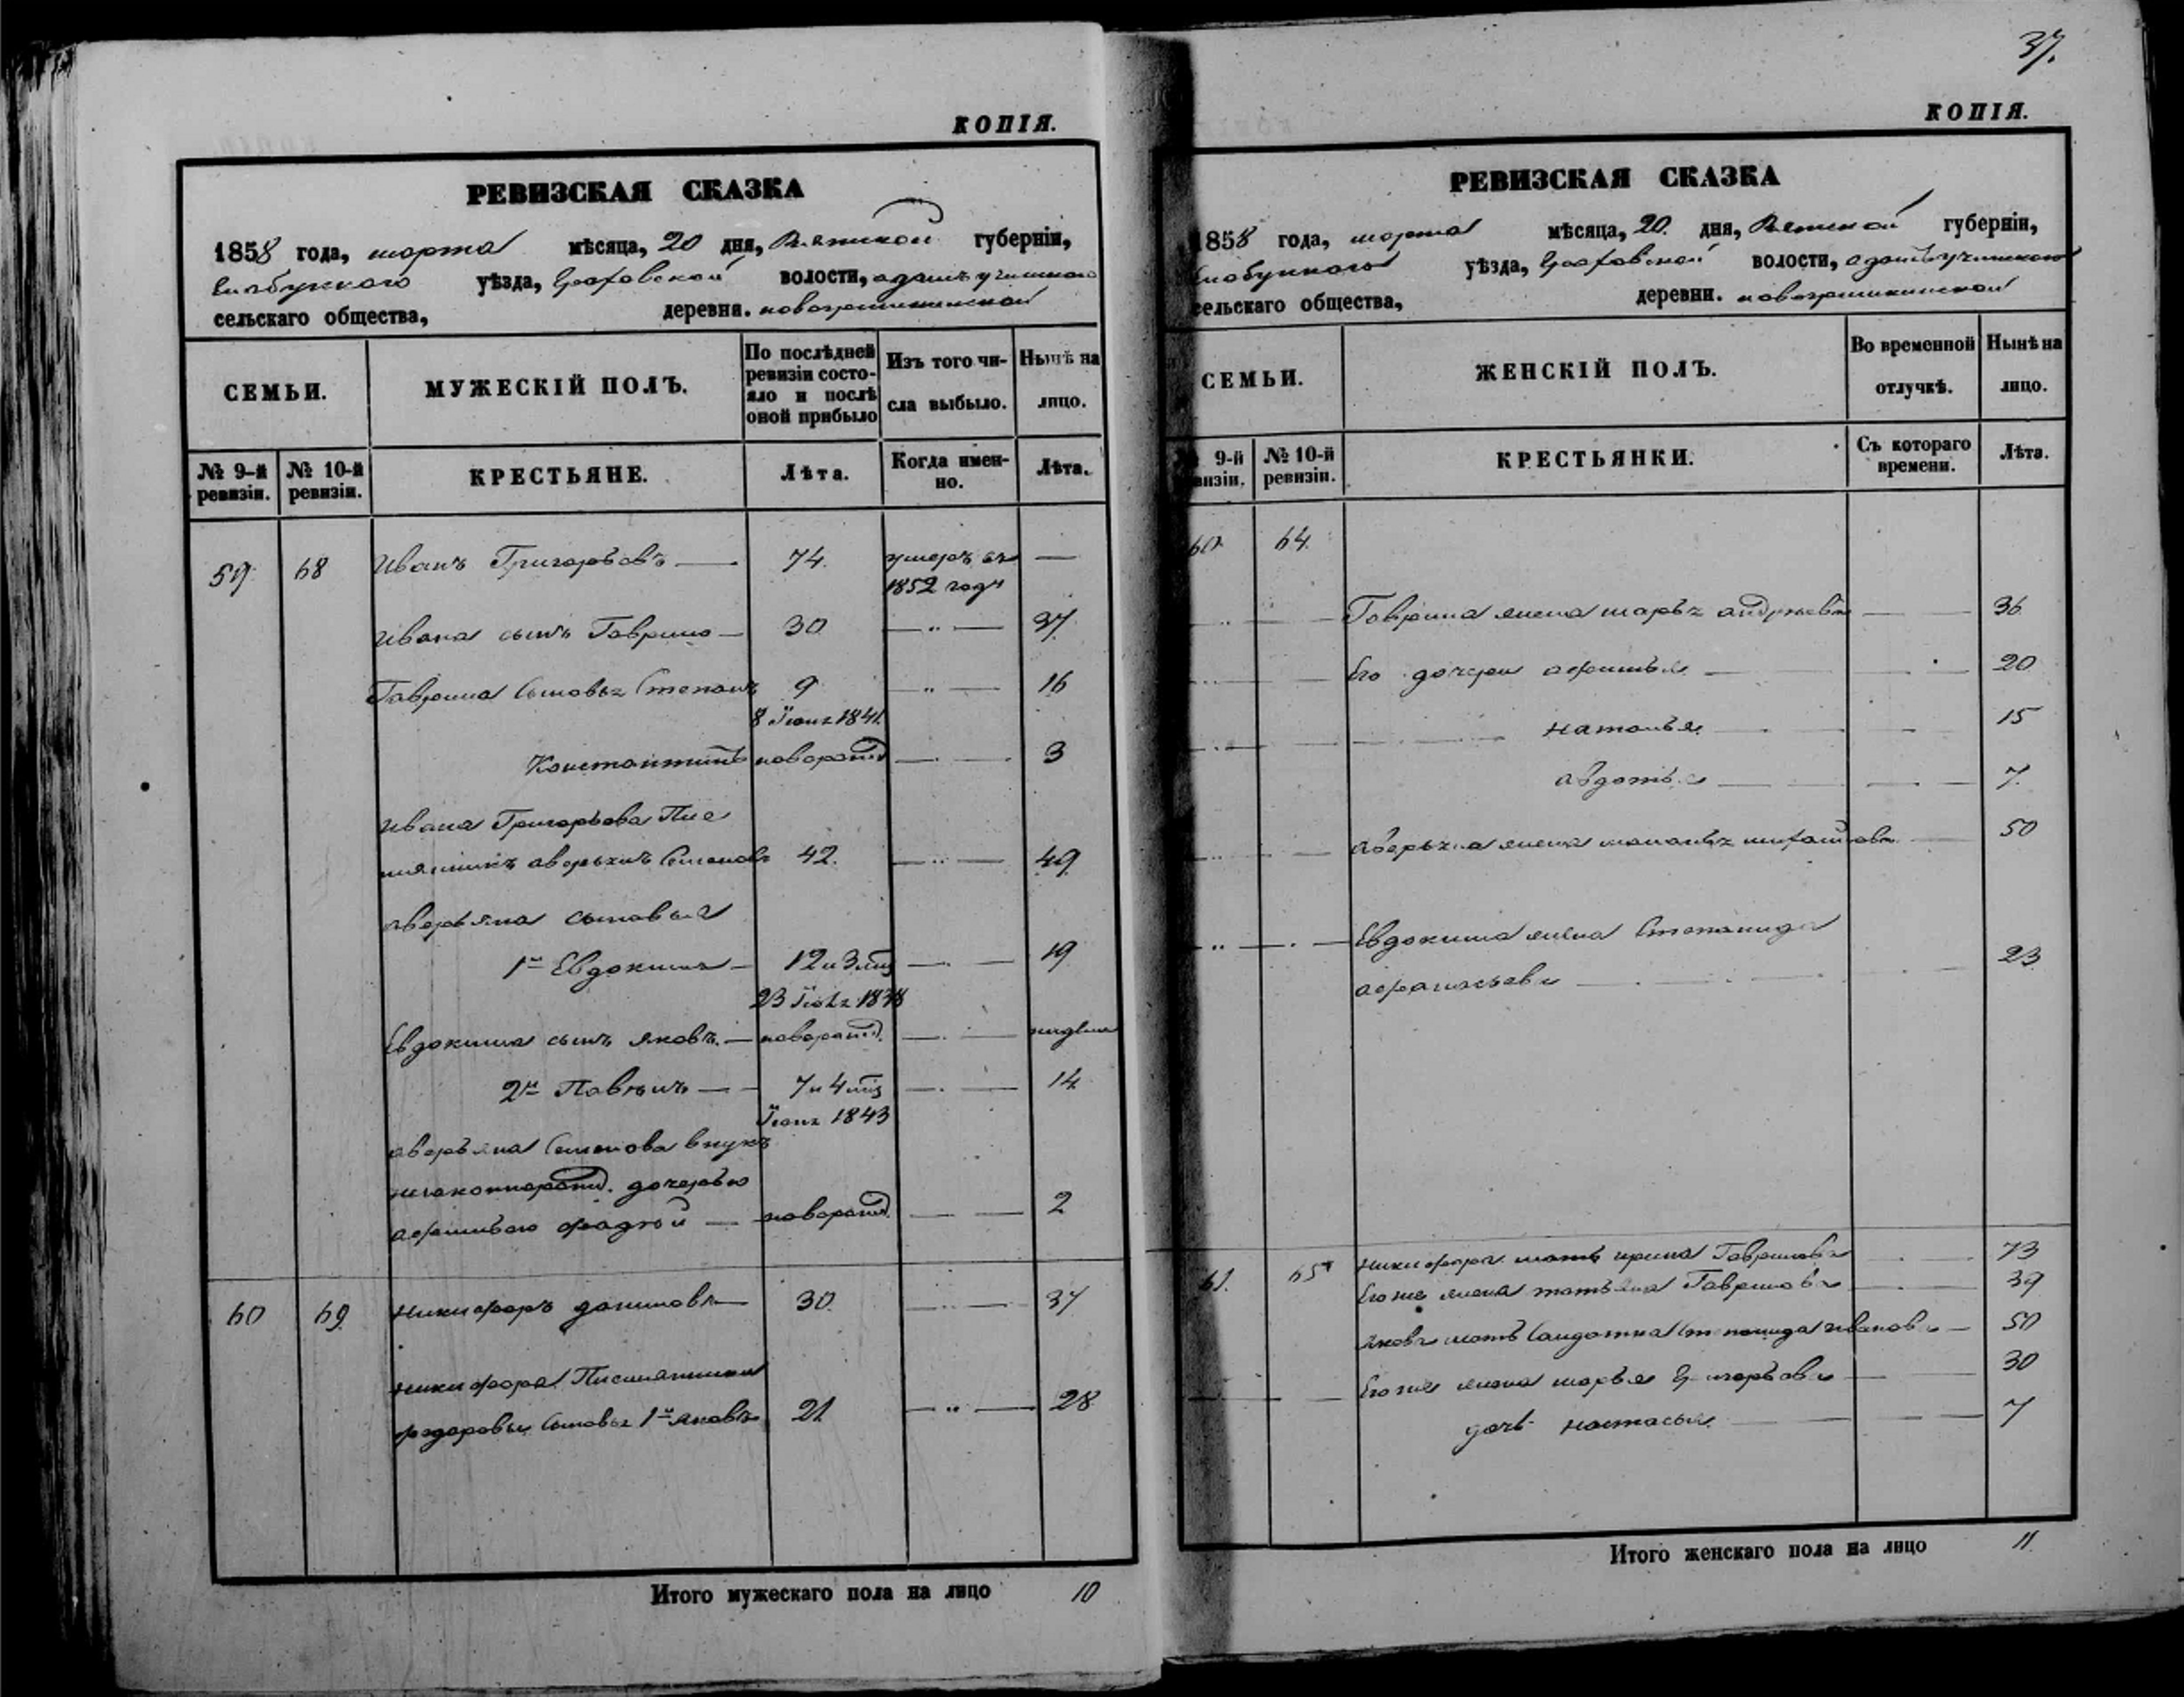 КОПІЯ.
РЕВИЗСКАЯ СКАЗКА
1858 года, марта мѣсяца, 20 дня, Вятской губерніи,
Елабужского уѣзда, Граховской волости,
сельскаго общества, деревня.
СЕМЬИ. МУЖЕСКІЙ ПОЛЪ. По послѣдней ревизіи состояло и послѣ оной прибыло Изъ того числа выбыло. Нынѣ на лицо.
№ 9-й ревизіи. № 10-й ревизіи. КРЕСТЬЯНЕ. Лѣта. Когда именно. Лѣта.
59 68 Иванъ Григорьевъ — 74. умеръ въ —
1852 году
Ивана сынъ Гаврило — 30. — " — 37.
Гаврила сыновья Степанъ 9 — " — 16
Константинъ новорожд — 3
Ивана Григорьева Пле
мянникъ Аверьянъ Семеновъ 42. — " — 49.
Аверьяна сыновья
1й Евдокимъ — 12 и 3 мец — 19
Евдокима сынъ Яковъ. — новорожд. —
2й — 7 и 4 мец — 14
1843
Аверьяна Семенова внукъ
незаконнорожд. дочерью
— новорожд. — 2
60 69. Никифоръ Даниловъ — 30. — " — 37
Никифора Племянники
Федоровы Сыновья 1й Яковъ 21. — " — 28
Итого мужескаго пола на лицо 10
37.
КОПІЯ.
РЕВИЗСКАЯ СКАЗКА
1858 года, марта мѣсяца, 20. дня, Вятской губерніи,
Елабужского уѣзда, Граховской волости,
сельскаго общества, деревни.
СЕМЬИ. ЖЕНСКІЙ ПОЛЪ. Во временной отлучкѣ. Нынѣ на лицо.
№ 9-й ревизіи. № 10-й ревизіи. КРЕСТЬЯНКИ. Съ котораго времени. Лѣта.
60. 64.
Гаврила жена Марья Андреева — 36
Его дочери Афимья — 20
Наталья — 15
Авдотья — 7.
Аверьяна жена — 50
Евдокима жена Степанида
Афанасьева — 23
61. 65 Никифора мать Ирина Гаврилова — 73
Его же жена Татьяна Гаврилова — 39
Якова мать Солдатка Степанида Иванова — 50
Его же жена Марья Григорьева — 30
дочь Настасья — 7
Итого женскаго пола на лицо 11.